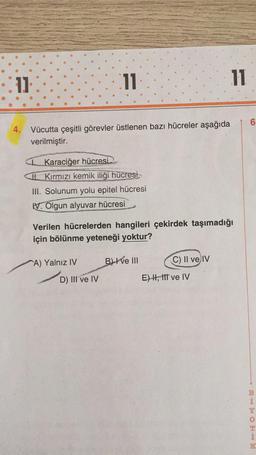 11 11 11
4. Vücutta çeşitli görevler üstlenen bazı hücreler aşağıda
verilmiştir.
I. Karaciğer hücresi
II. Kırmızı kemik iliği hücresi
III. Solunum yolu epitel hücresi
IV. Olgun alyuvar hücresi
Verilen hücrelerden hangileri çekirdek taşımadığı
için bölünme yeteneği yoktur?
A) Yalnız IV B) I ve III C) II ve IV
D) III ve IV E) II, III ve IV
6